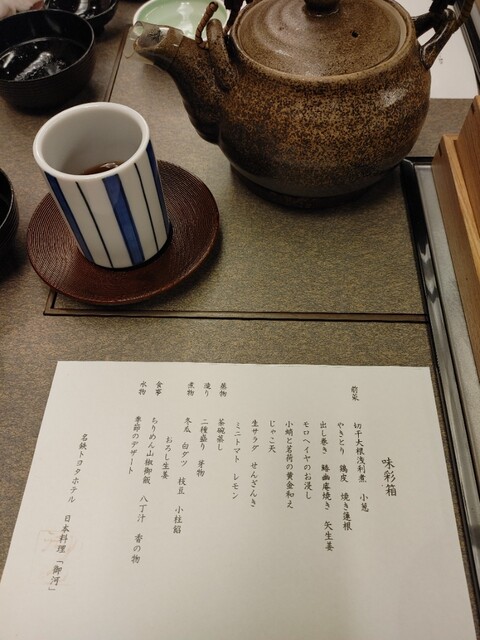 味彩箱
前菜 切干大根浅利煮 小葱
やきとり 鶏皮 焼き蓮根
出し巻き 鰆幽庵焼き 矢生姜
モロヘイヤのお浸し
小蛸と茗荷の黄金和え
じゃこ天
生サラダ せんざんき
ミニトマト レモン
蒸物 茶碗蒸し
造り 二種盛り 芽物
煮物 冬瓜 白ダツ 枝豆 小柱餡
おろし生姜
食事 ちりめん山椒御飯 八丁汁 香の物
水物 季節のデザート
名鉄トヨタホテル 日本料理「御河」